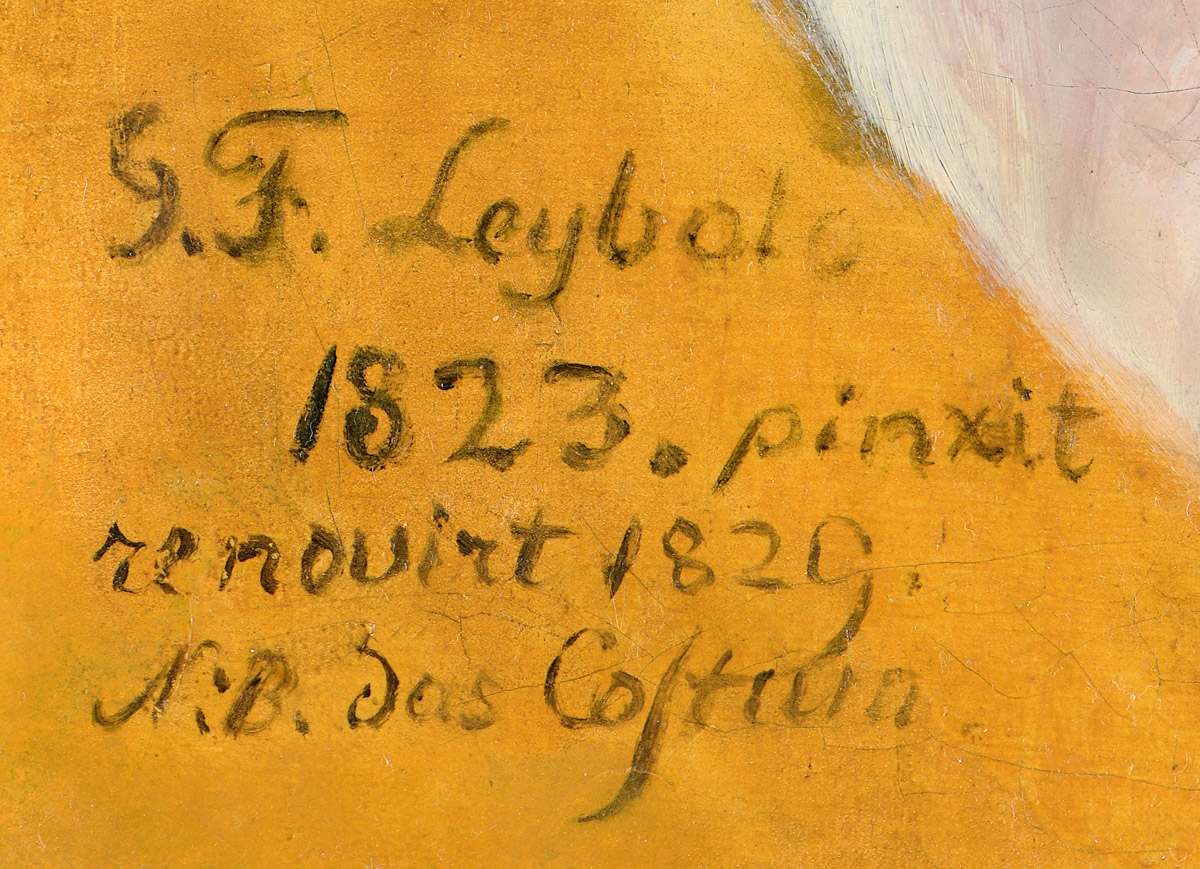 G. F. Leybold
1823. pinxit
renovirt 1829.
N:B. das Coſtum